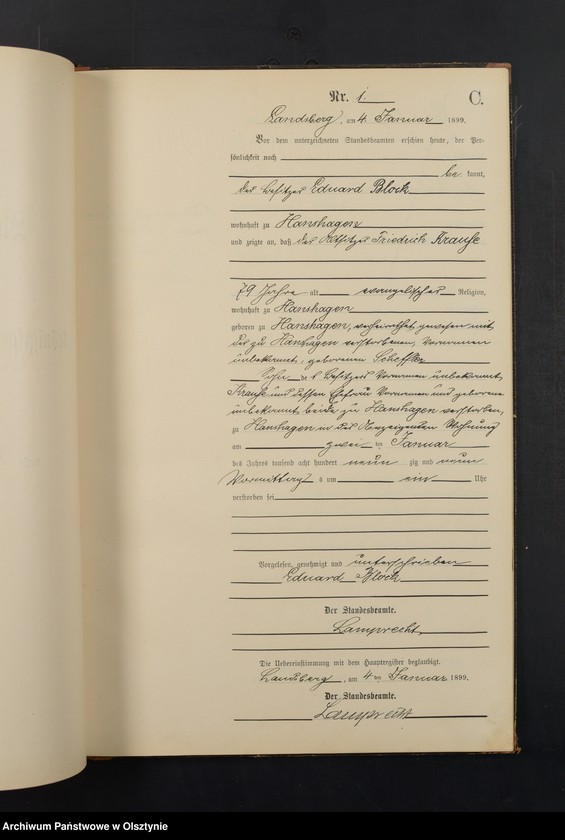 Nr. 1. C.
Landsberg, am 4. Januar 1899.
Vor dem unterzeichneten Standesbeamten erschien heute, der Per-
sönlichkeit nach
be kannt,
der Besitzer Eduard Block
wohnhaft zu Hanshagen
und zeigte an, daß der Altsitzer Friedrich Krause
79 Jahre alt evangelischer Religion,
wohnhaft zu Hanshagen
geboren zu Hanshagen, verheirathet gewesen mit
der zu Hanshagen verstorbenen, Vornamen
unbekannt, geborenen Scheffler
Sohn des Besitzers Vornamen unbekannt,
Krause und dessen Ehefrau Vornamen und geborene
unbekannt beide zu Hanshagen verstorben,
zu Hanshagen in des Anzeigenden Wohnung
am zwei ten Januar
des Jahres tausend acht hundert neun zig und neun
Vormittags um ein Uhr
verstorben sei
Vorgelesen, genehmigt und unterschrieben
Eduard Block
Der Standesbeamte.
Lamprecht.
Die Uebereinstimmung mit dem Hauptregister beglaubigt.
Landsberg, am 4 ten Januar 1899.
Der Standesbeamte.
Lamprecht
Archiwum Państwowe w Olsztynie